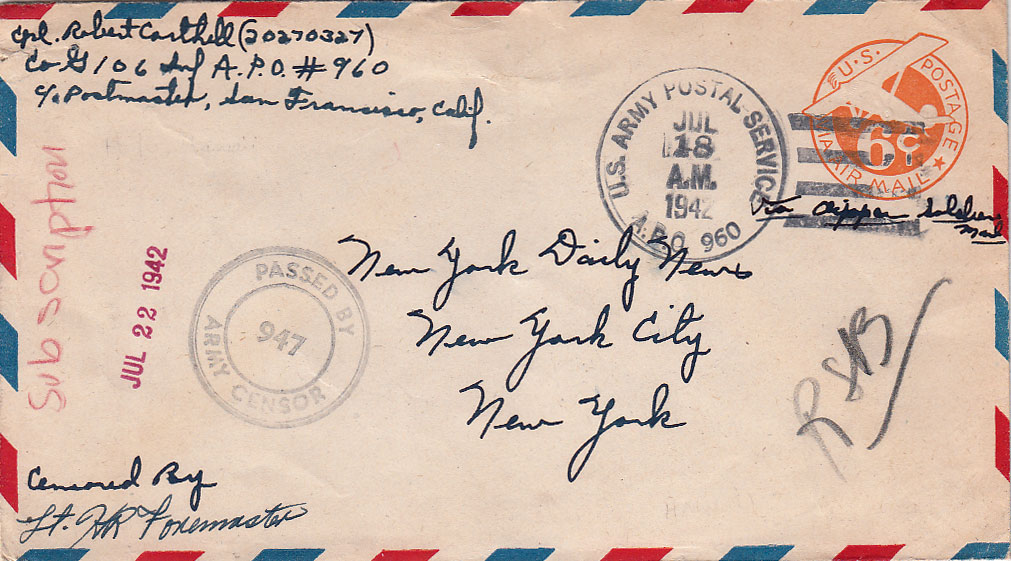 Cpl. Robert Carthell (20270327)
Co G 106 Inf A.P.O. #960
c/o Postmaster, San Francisco, Calif.
U.S. ARMY POSTAL SERVICE
JUL
18
A.M.
1942
A.P.O. 960
U.S. POSTAGE
6¢
VIA AIR MAIL
Via Clipper
Mail
Subscription
JUL 22 1942
PASSED BY
947
ARMY CENSOR
New York Daily News
New York City
New York
Censored By
Lt. HR Foremaster